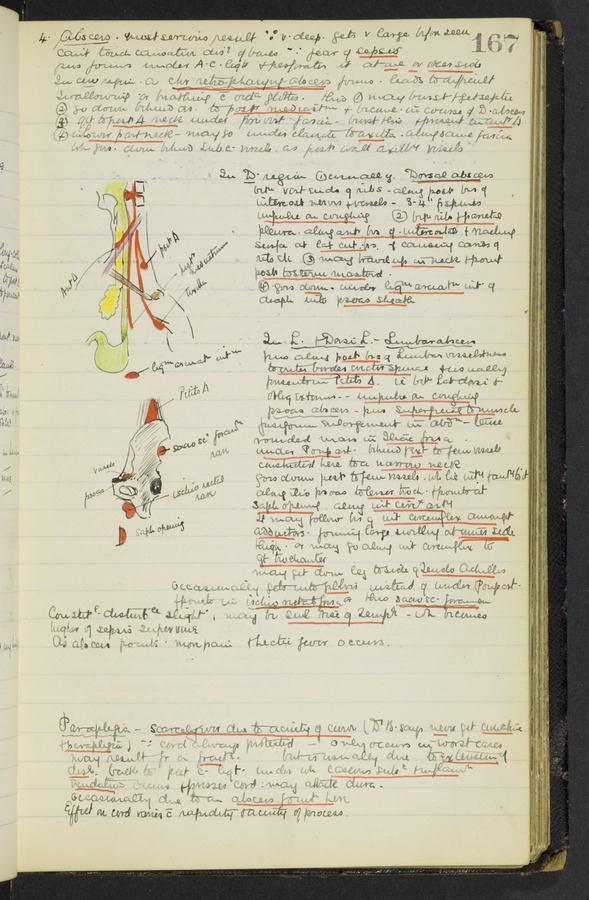 167
4. Abscess. Most serious result ∵ v. deep. Gets v large before seen
Can't touch causation disd of bones ∵ fear of sepsis
pus forms under A.C. ligt & perforates it at one or other side
In cerv region. a chr retropharyng abscess forms. leads to difficult
swallowing or breathing c oeda glottis. This ① may burst & get septic
② go down behind oes. to post mediastm & become in course of D. abscess
③ get to post Δ neck under prevert fascia. burst this & present in ant Δ
under clavicle to axilla. along same fascia
behind subc. vessels. as post wall axilly vessels
In D. region ① usually. Dorsal abscess
betn vert ends of ribs - along post brs of
intercost nerves & vessels - 3-4" fr spines
impulse on coughing ② betn ribs & parietal
pleura. along ant brs of intercostal & reaching
surface at lat cut. brs. & causing caries of
ribs etc ③ may travel up in neck & point
post to sterno mastoid.
④ goes down. under ligm arcuatm int of
diaph into psoas sheath
Ant Δ
post Δ
postr mediastinum
ligm arcuat intm
Petits Δ
sacro sc foramn
ischio rectal
vessels
psoas
saph opening
In L. & Dorsi L. - Lumbar abscess
pus along post brs of lumbar vessels & nerves
to outer border erector spinae & usually
presents in Petits Δ. ie betn Lat dorsi &
obliq externus - - impulse on coughing
psoas abscess - pus superficial to muscle
fusiform enlargement in abdn - tense
rounded mass in Iliac fossa.
under Poupart. behind first to fem vessels
constricted here to a narrow neck
goes down post to fem vessels.
along ilio psoas to lesser troch. & points at
saph opening. along int circx arty
It may follow brs of int circumflex amongst
adductors. forming large swelling at inner side
thigh. or may go along int circumflex to
gt trochanter
may get down leg to side of Tendo Achilles
Occasionally gets into pelvis instead of under Poupart.
& points in ischio rectal fossa or thro sacro sc. foramen
Constitl disturbce slight, may be subl rise of tempr - wh becomes
higher if sepsis supervene
As abscess points. more pain & hectic fever occurs.
Paraplegia - scarcely ever due to acuity of curve (Dr B. says never get curvature
& paraplegia) ∵ cord always protected - only occurs in worst cases
may result fr a fractr. but is usually due to extension of
dis. back to post c. ligt. under wh caseous subce & inflamm
occurs & presses cord: may affect dura.
Occasionally due to an abscess formt here
Effect on cord varies c rapidity & acuity of process.